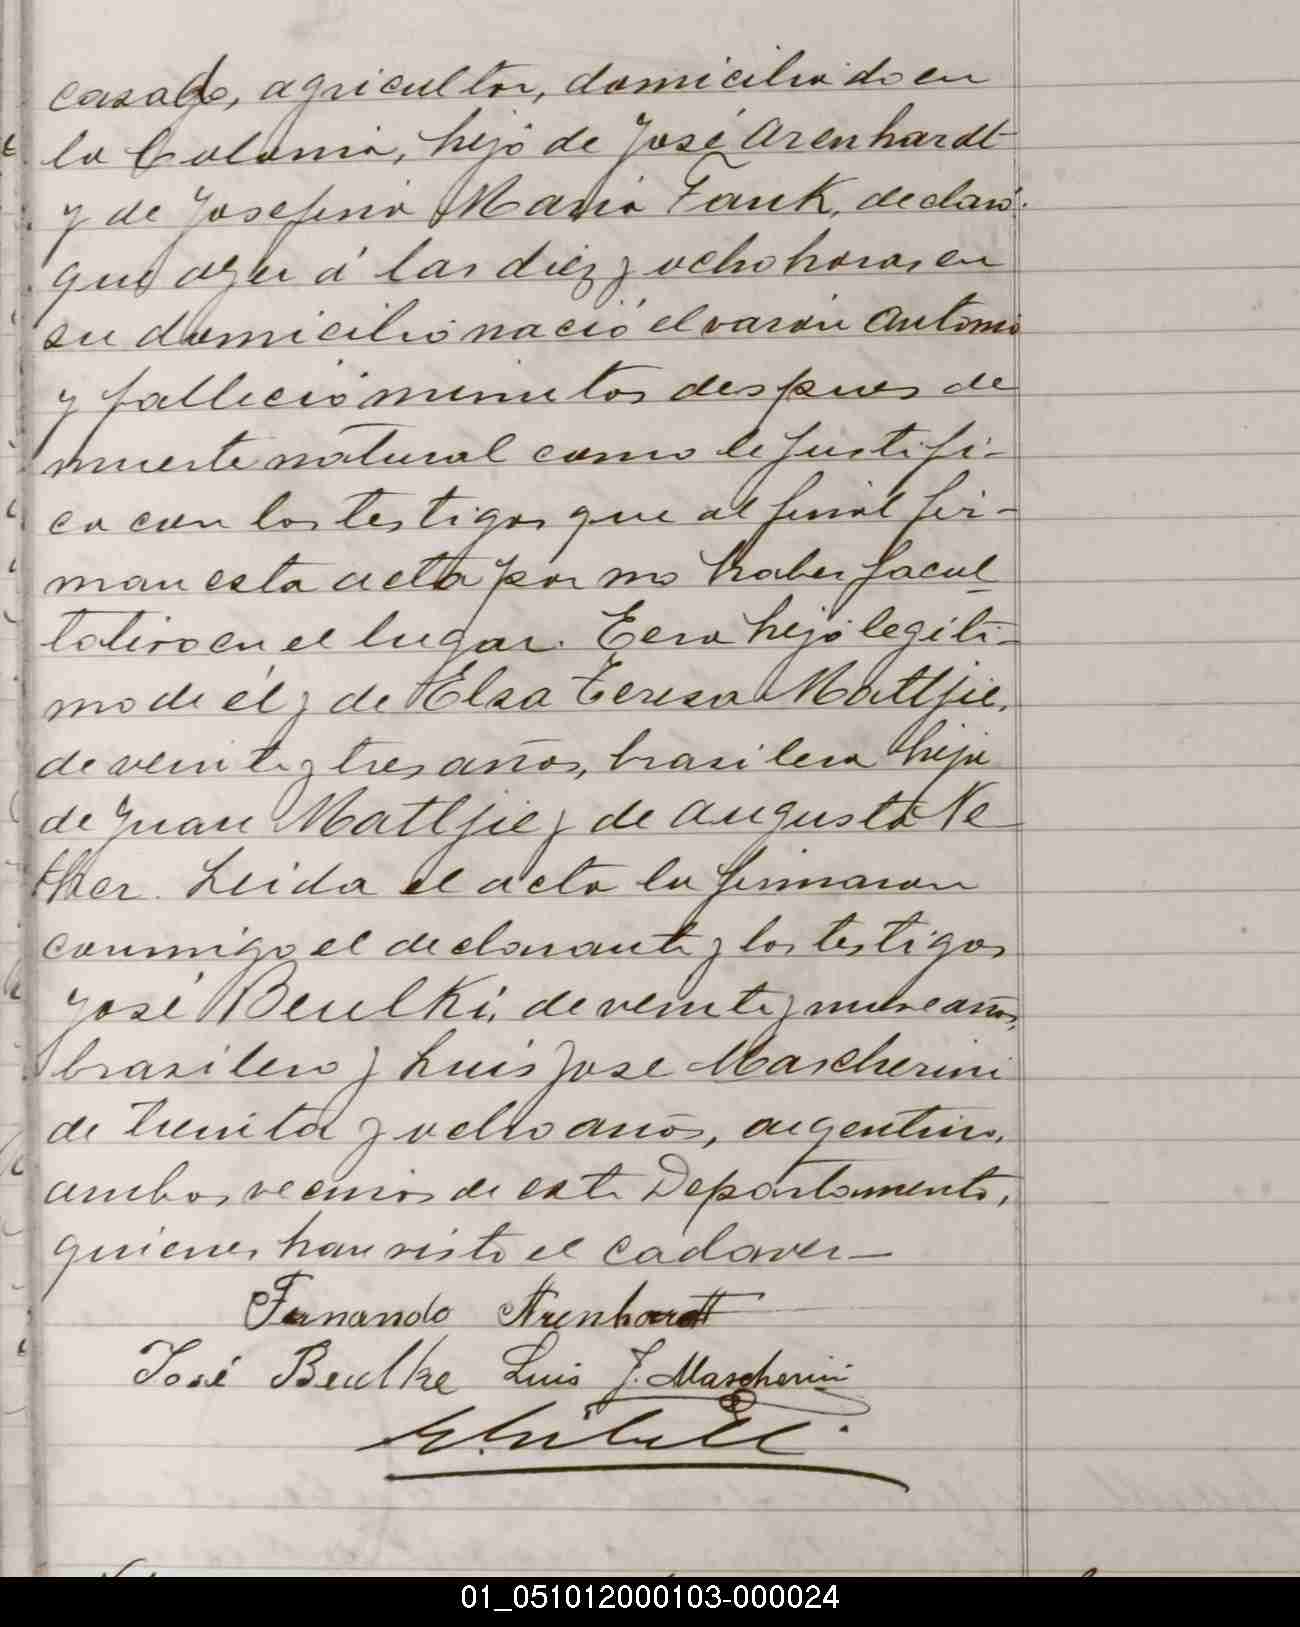 casado, agricultor, domiciliado en
la Colonia, hijo de José Arenhardt
y de Josefina María Fank, declaró:
que ayer á las diez y ocho horas, en
su domicilio nació el varón Antonio
y falleció minutos despues de
muerte natural como le justifi-
ca con los testigos que al final fir-
man esta acta por no haber facul
tativo en el lugar. Era hijo legiti-
mo de él y de Elsa Teresa Matljie,
de veinte y tres años, brasilera hija
de Juan Matljie y de Augusta Ne
ther. Leida el acta la firmaron
conmigo el declarante y los testigos
José Beulki, de veinte y nueve años,
brasilero y Luis Jose Mascherini
de treinta y ocho años, argentino,
ambos vecinos de este Departamento,
quienes han visto el cadaver—
Fernando Arenhardt
José Beulke Luis J. Mascherini
01_051012000103-000024